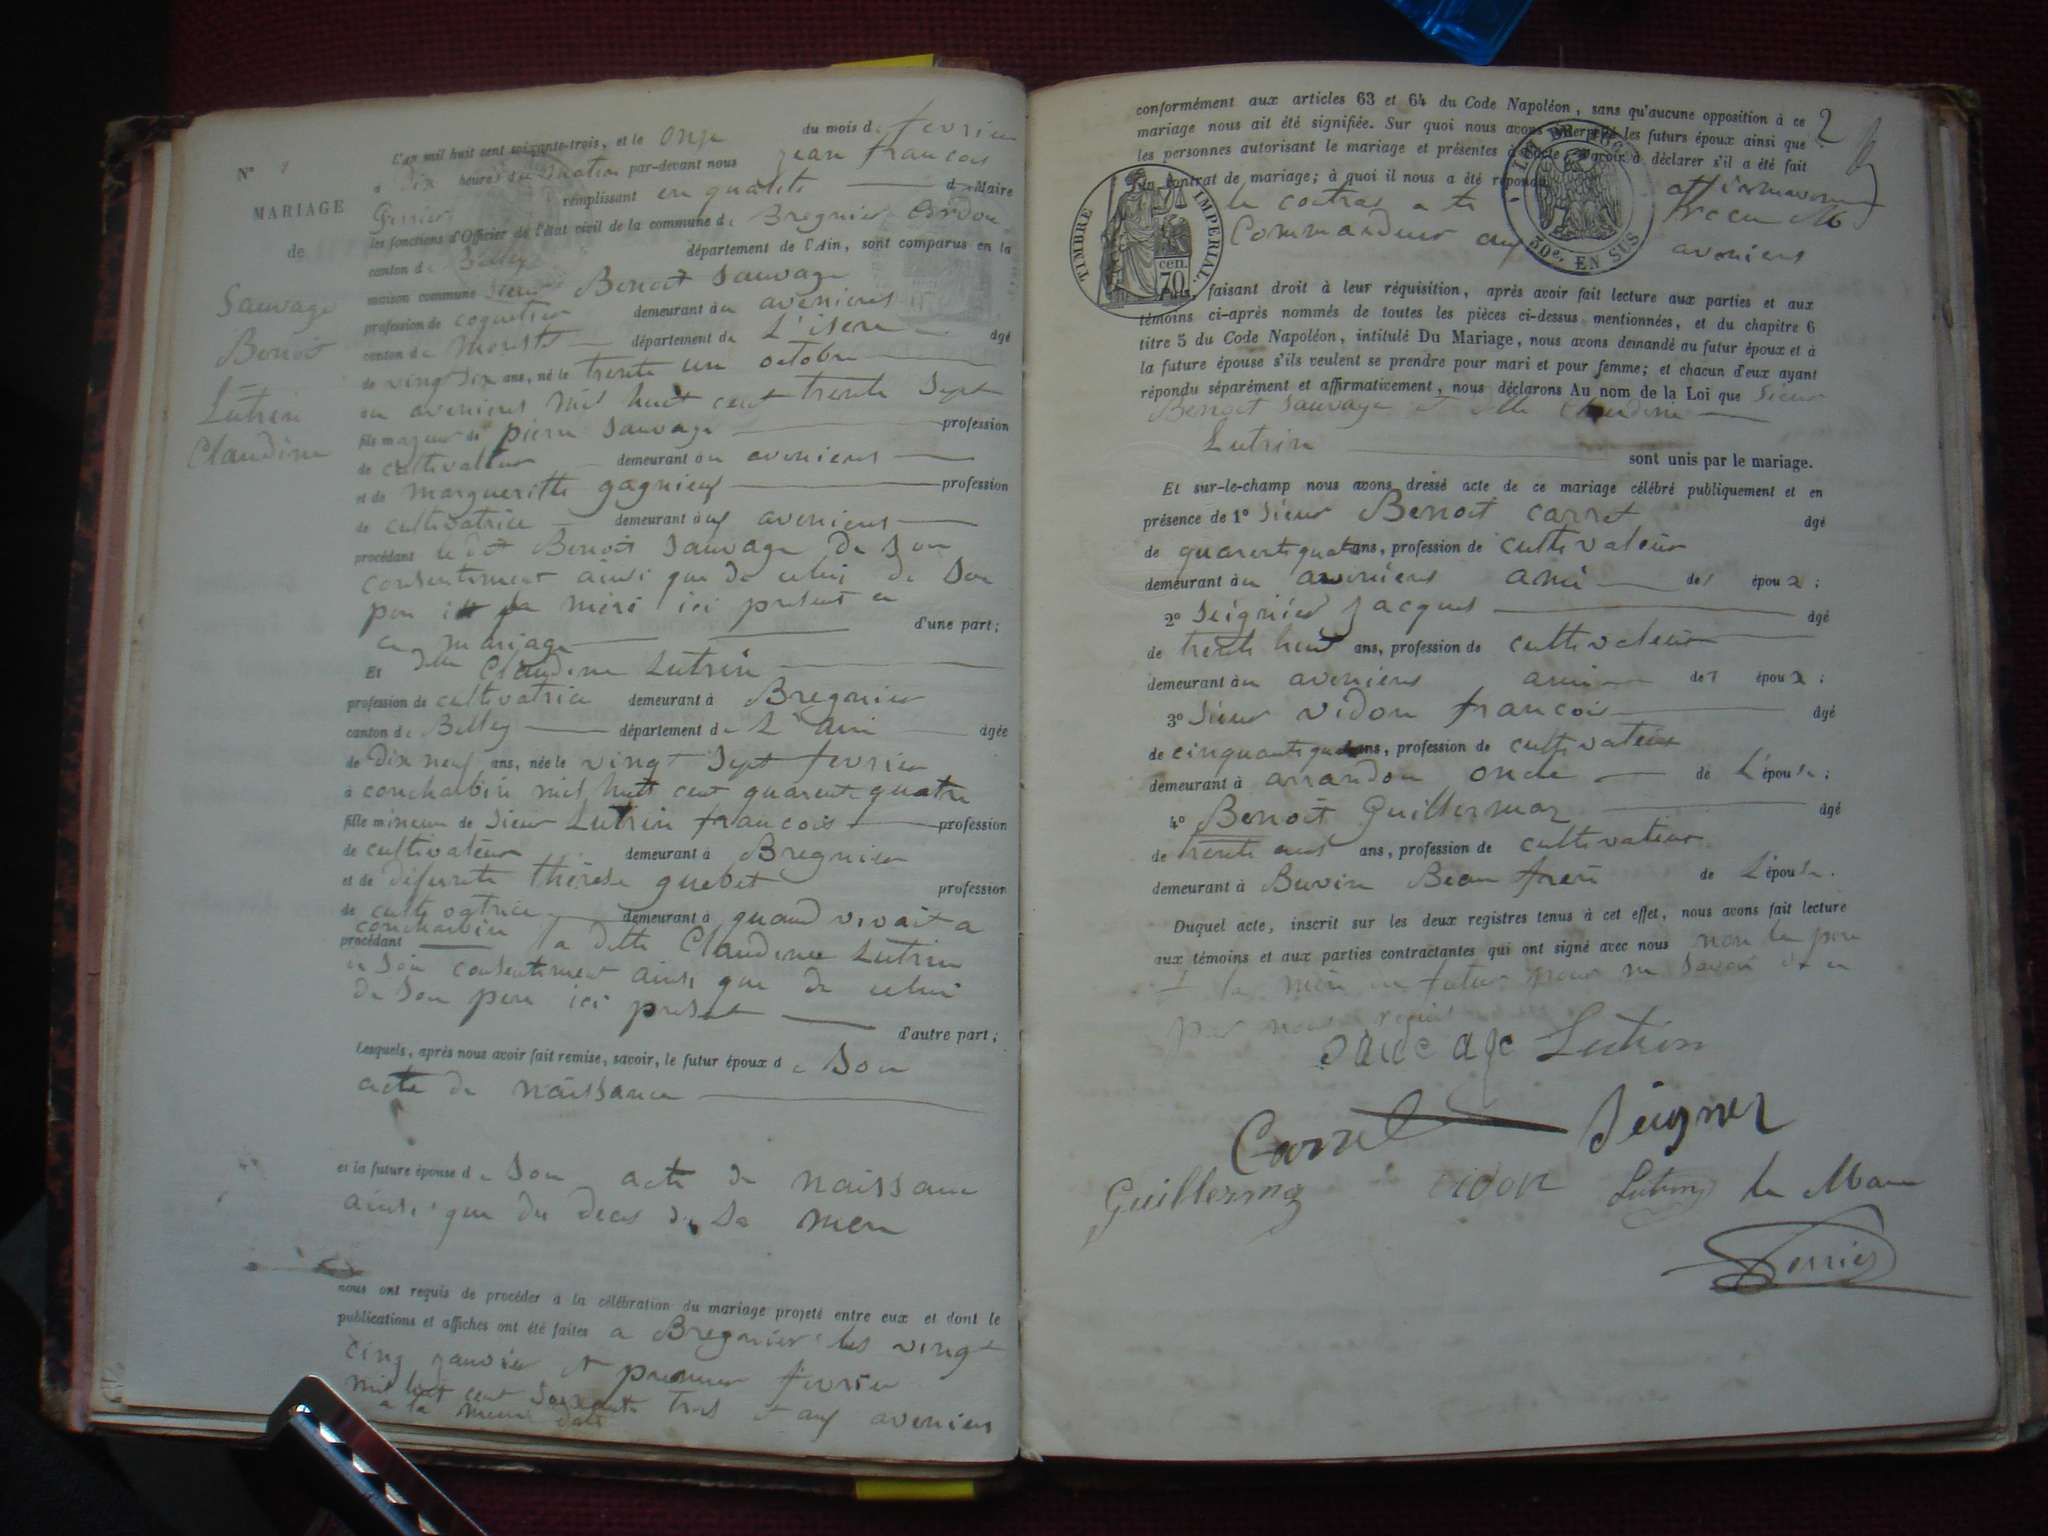 N° 1
MARIAGE
de
Sauvage
Benoit
Lutrin
Claudine
L'an mil huit cent soixante-trois, et le onze du mois de fevrier
à Dix heures du matin par-devant nous jean francois
remplissant en qualité de Maire
les fonctions d'Officier de l'état civil de la commune de Bregnier Cordon
canton de Belley département de l'Ain, sont comparus en la
maison commune Sieur Benoit Sauvage
profession de coquetier demeurant à aux avenieres
canton de Morestel département de L'isere âgé
de vingt six ans, né le trente un octobre
aux avenieres mil huit cent trente Sept
fils majeur de pierre Sauvage profession
de cultivateur demeurant à aux avenieres
et de margueritte gagnieux profession
de cultivatrice demeurant à aux avenieres
procédant le dit Benoit Sauvage de Son
consentement ainsi que de celui de Son
pere et sa mère ici present
au mariage d'une part;
Et delle Claudine Lutrin
profession de cultivatrice demeurant à Bregnier
canton de Belley département de L'ain âgée
de Dix neuf ans, née le vingt Sept fevrier
à conchabin mil huit cent quarente quatre
fille mineure de Sieur Lutrin francois profession
de cultivateur demeurant à Bregnier
et de défunte thérèse guebet profession
de cultivatrice demeurant à quand vivait a
conchabin
procédant la ditte Claudine Lutrin
de Son consentement ainsi que de celui
de Son pere ici present d'autre part;
Lesquels, après nous avoir fait remise, savoir, le futur époux de Son
acte de naissance
et la future épouse de Son acte de naissance
ainsi que du deces de Sa mere
nous ont requis de procéder à la célébration du mariage projeté entre eux et dont le
publications et affiches ont été faites a Bregnier les vingt
cinq janvier et premier fevrier
mil huit cent Soixante trois et aux avenieres
a la meme date
2
conformément aux articles 63 et 64 du Code Napoléon, sans qu'aucune opposition à ce
mariage nous ait été signifiée. Sur quoi nous avons interpellé les futurs époux ainsi que
les personnes autorisant le mariage et présentes à l'acte, d'avoir à déclarer s'il a été fait
un contrat de mariage; à quoi il nous a été répondu
le contrat a été
aux avenieres
TIMBRE IMPERIAL
70 cen.
50e. EN SUS
Puis, faisant droit à leur réquisition, après avoir fait lecture aux parties et aux
témoins ci-après nommés de toutes les pièces ci-dessus mentionnées, et du chapitre 6
titre 5 du Code Napoléon, intitulé Du Mariage, nous avons demandé au futur époux et à
la future épouse s'ils veulent se prendre pour mari et pour femme; et chacun d'eux ayant
répondu séparément et affirmativement, nous déclarons Au nom de la Loi que Sieur
Benoit Sauvage et delle Claudine
Lutrin
sont unis par le mariage.
Et sur-le-champ nous avons dressé acte de ce mariage célébré publiquement et en
présence de 1° Sieur Benoit carret âgé
de quarente quatre ans, profession de cultivateur
demeurant à aux avenieres ami des époux;
2° Seignier jacques âgé
de trente huit ans, profession de cultivateur
demeurant à aux avenieres ami des époux;
3° Sieur vidon francois âgé
de cinquante quatre ans, profession de cultivateur
demeurant à arrandon oncle de L'épouse;
4° Benoit Guillermaz âgé
de trente ans, profession de cultivateur
demeurant à Buvin Beau frere de L'épouse.
Duquel acte, inscrit sur les deux registres tenus à cet effet, nous avons fait lecture
aux témoins et aux parties contractantes qui ont signé avec nous non le pere
et la mere du futur pour ne Savoir de ce
par nous requis
Sauvage Lutrin
Carret Seignier
Guillermaz vidon Lutrin le Maire